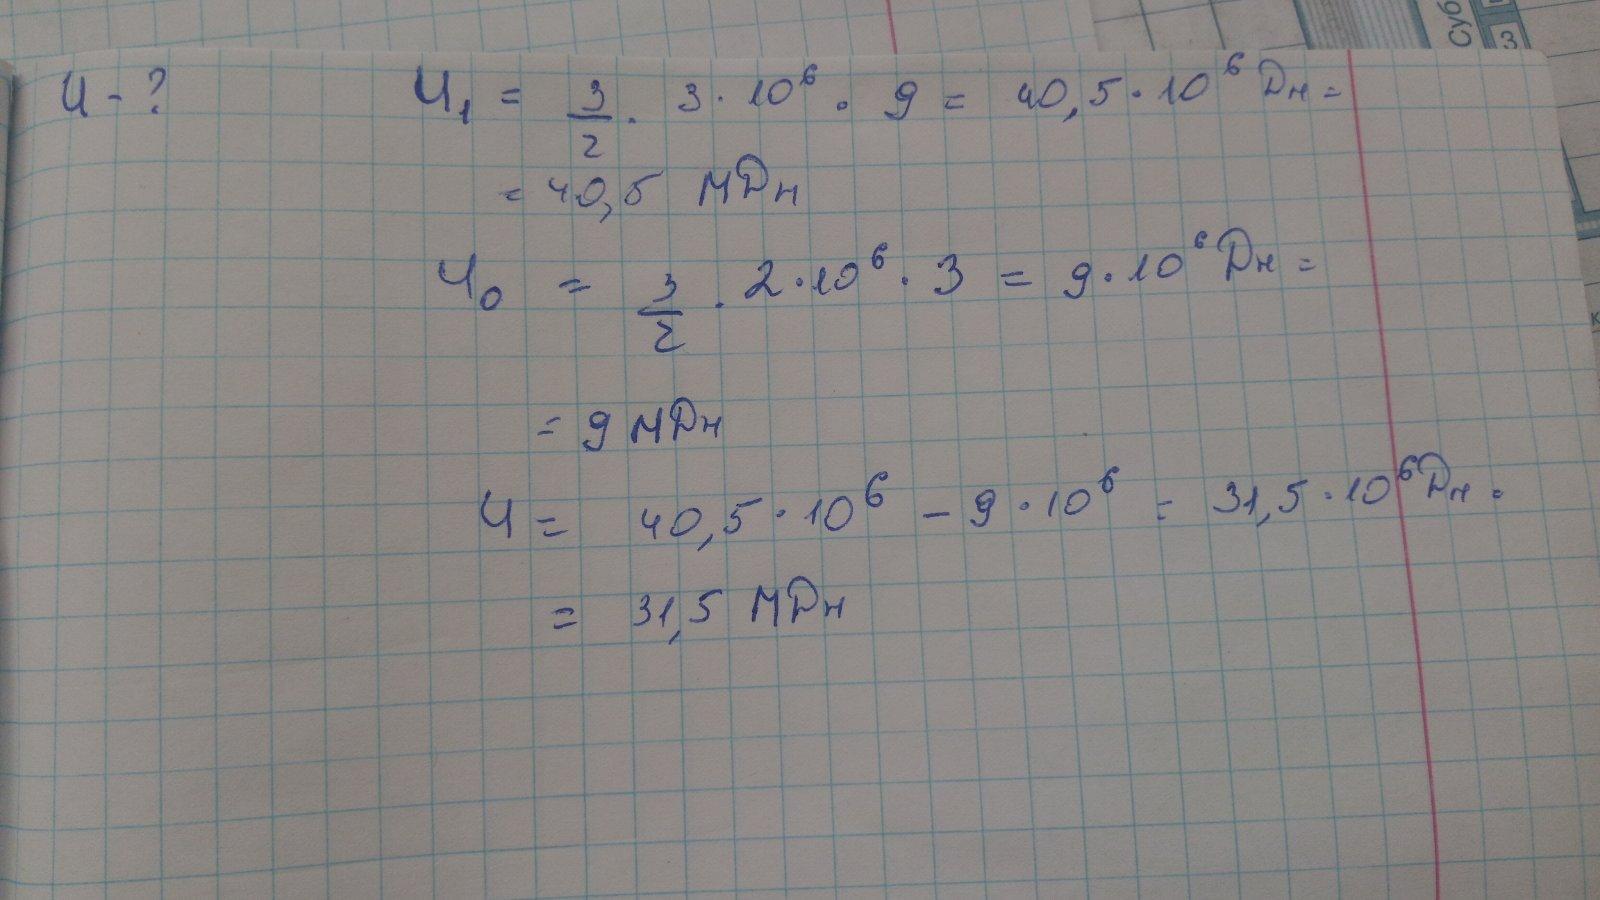 U - ?
U₁ = 3/2 · 3 · 10⁶ · 9 = 40,5 · 10⁶ Дж =
= 40,5 МДж
U₀ = 3/2 · 2 · 10⁶ · 3 = 9 · 10⁶ Дж =
= 9 МДж
U = 40,5 · 10⁶ - 9 · 10⁶ = 31,5 · 10⁶ Дж =
= 31,5 МДж
Суб
3